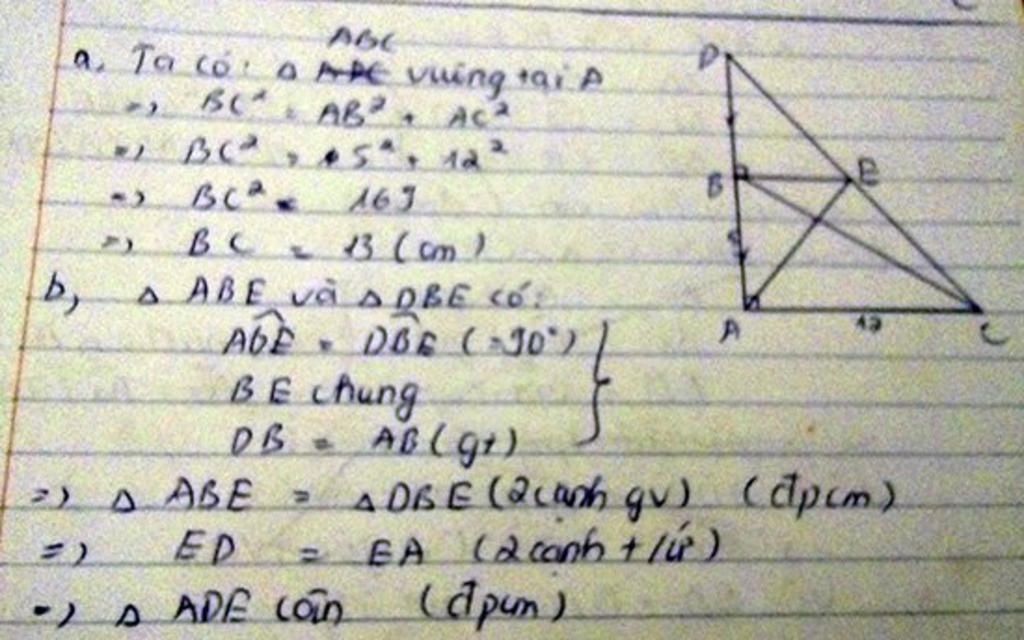 ABC
a, Ta có: Δ ADC vuông tại A
=> BC² = AB² + AC²
=> BC² = 5² + 12²
=> BC² = 169
=> BC = 13 (cm)
b, Δ ABE và Δ DBE có:
ABE = DBE (=90°)
BE chung
DB = AB (gt)
=> Δ ABE = Δ DBE (2 cạnh gv) (đpcm)
=> ED = EA (2 cạnh t/ứ)
=> Δ ADE cân (đpcm)
D
B E
5
A 12 C